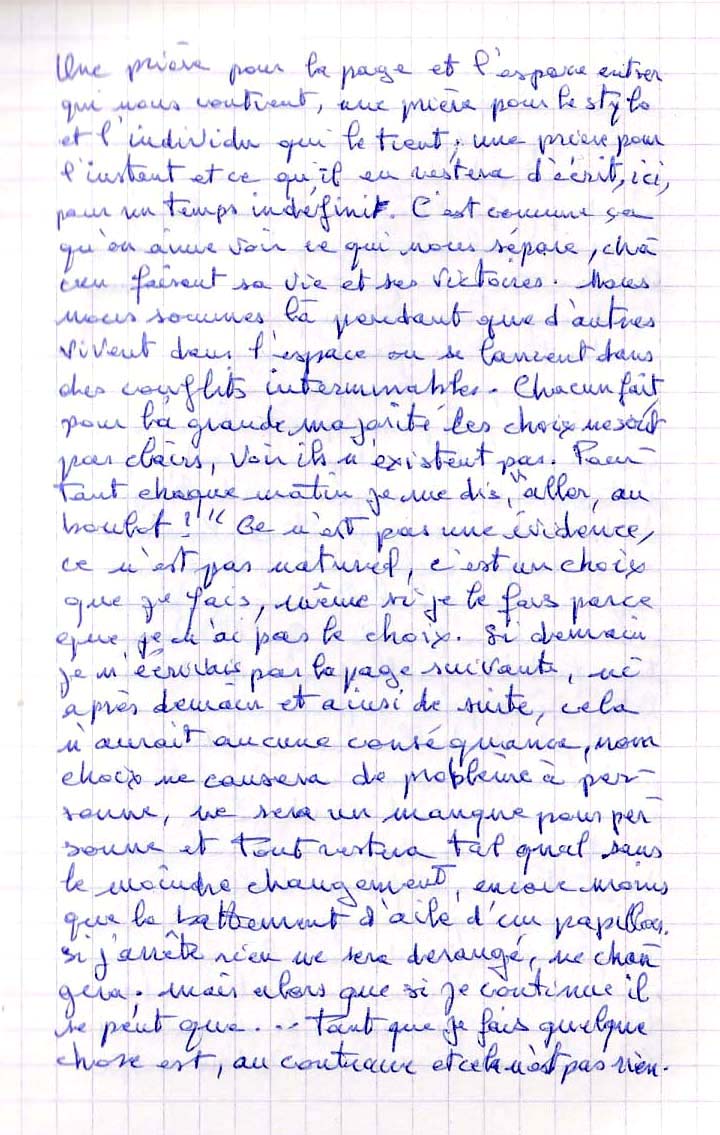 Une prière pour la page et l'espace entier
qui nous contient, une prière pour le stylo
et l'individu qui le tient, une prière pour
l'instant et ce qu'il en restera d'écrit, ici,
pour un temps indéfinit. C'est comme ça
qu'on aime voir ce qui nous sépare, cha
cun faisant sa vie et ses victoires. Nous
nous sommes là pendant que d'autres
vivent dans l'espace ou se lancent dans
des conflits interminables. Chacun fait,
pour la grande majorité les choix ne sont
pas clairs, voir ils n'existent pas. Pour-
tant chaque matin je me dis, "aller, au
boulot !" Ce n'est pas une évidence,
ce n'est pas naturel, c'est un choix
que je fais, même si je le fais parce
que je n'ai pas le choix. Si demain
je n'écrivais pas la page suivante, ni
après demain et ainsi de suite, cela
n'aurait aucune conséquance, mon
choix ne causera de problème à per-
sonne, ne sera un manque pour per-
sonne et tout restera tel quel sans
le moindre changement, encore moins
que le battement d'aile d'un papillon.
Si j'arrête rien ne sera derangé, ne chan
gera ; mais alors que si je continue il
se peut que... tant que je fais quelque
chose est, au contraire et cela n'est pas rien.